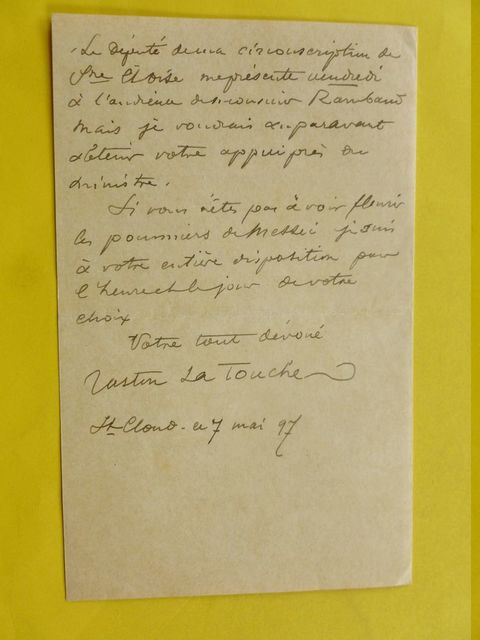 Le Député de ma circonscription de
Sne Et Oise me présente vendredi
à l'audience de monsieur Rambaud
mais je voudrais auparavant
obtenir votre appui près du
ministre.
Si vous n'êtes pas à voir fleurir
les pommiers de Messei je suis
à votre entière disposition pour
l'heure et le jour de votre
choix
Votre tout dévoué
Gaston La Touche
St Cloud - ce 7 mai 97